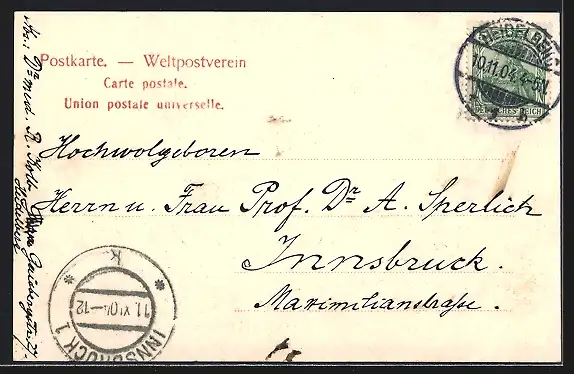 Postkarte. — Weltpostverein
Carte postale.
Union postale universelle.
HEIDELBERG
10.11.04. 4-5N.
DEUTSCHES REICH
Hochwolgeboren
Herrn u. Frau Prof. Dr A. Sperlich
Innsbruck.
Maximilianstraße.
INNSBRUCK 1
11 XI 04-12
* K *
Abs.: Dr med. R. Kolb
Heidelberg
Gaisbergstr. 27.